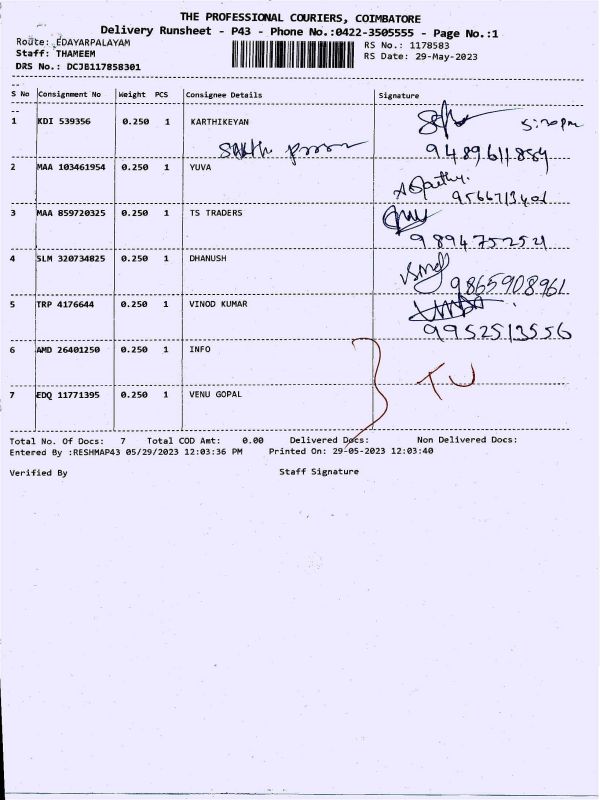 THE PROFESSIONAL COURIERS, COIMBATORE
Delivery Runsheet - P43 - Phone No.:0422-3505555 - Page No.:1
Route: EDAYARPALAYAM
RS No.: 1178583
Staff: THAMEEM
RS Date: 29-May-2023
DRS No.: DCJB117858301
S No Consignment No Weight PCS Consignee Details Signature
1 KDI 539356 0.250 1 KARTHIKEYAN 5:20pm
9489611889
2 MAA 103461954 0.250 1 YUVA
9566713401
3 MAA 859720325 0.250 1 TS TRADERS
9894752521
4 SLM 320734825 0.250 1 DHANUSH
9865908961
5 TRP 4176644 0.250 1 VINOD KUMAR
9952513556
6 AMD 26401250 0.250 1 INFO
TU
7 EDQ 11771395 0.250 1 VENU GOPAL
Total No. Of Docs: 7 Total COD Amt: 0.00 Delivered Docs: Non Delivered Docs:
Entered By :RESHMAP43 05/29/2023 12:03:36 PM Printed On: 29-05-2023 12:03:40
Verified By Staff Signature